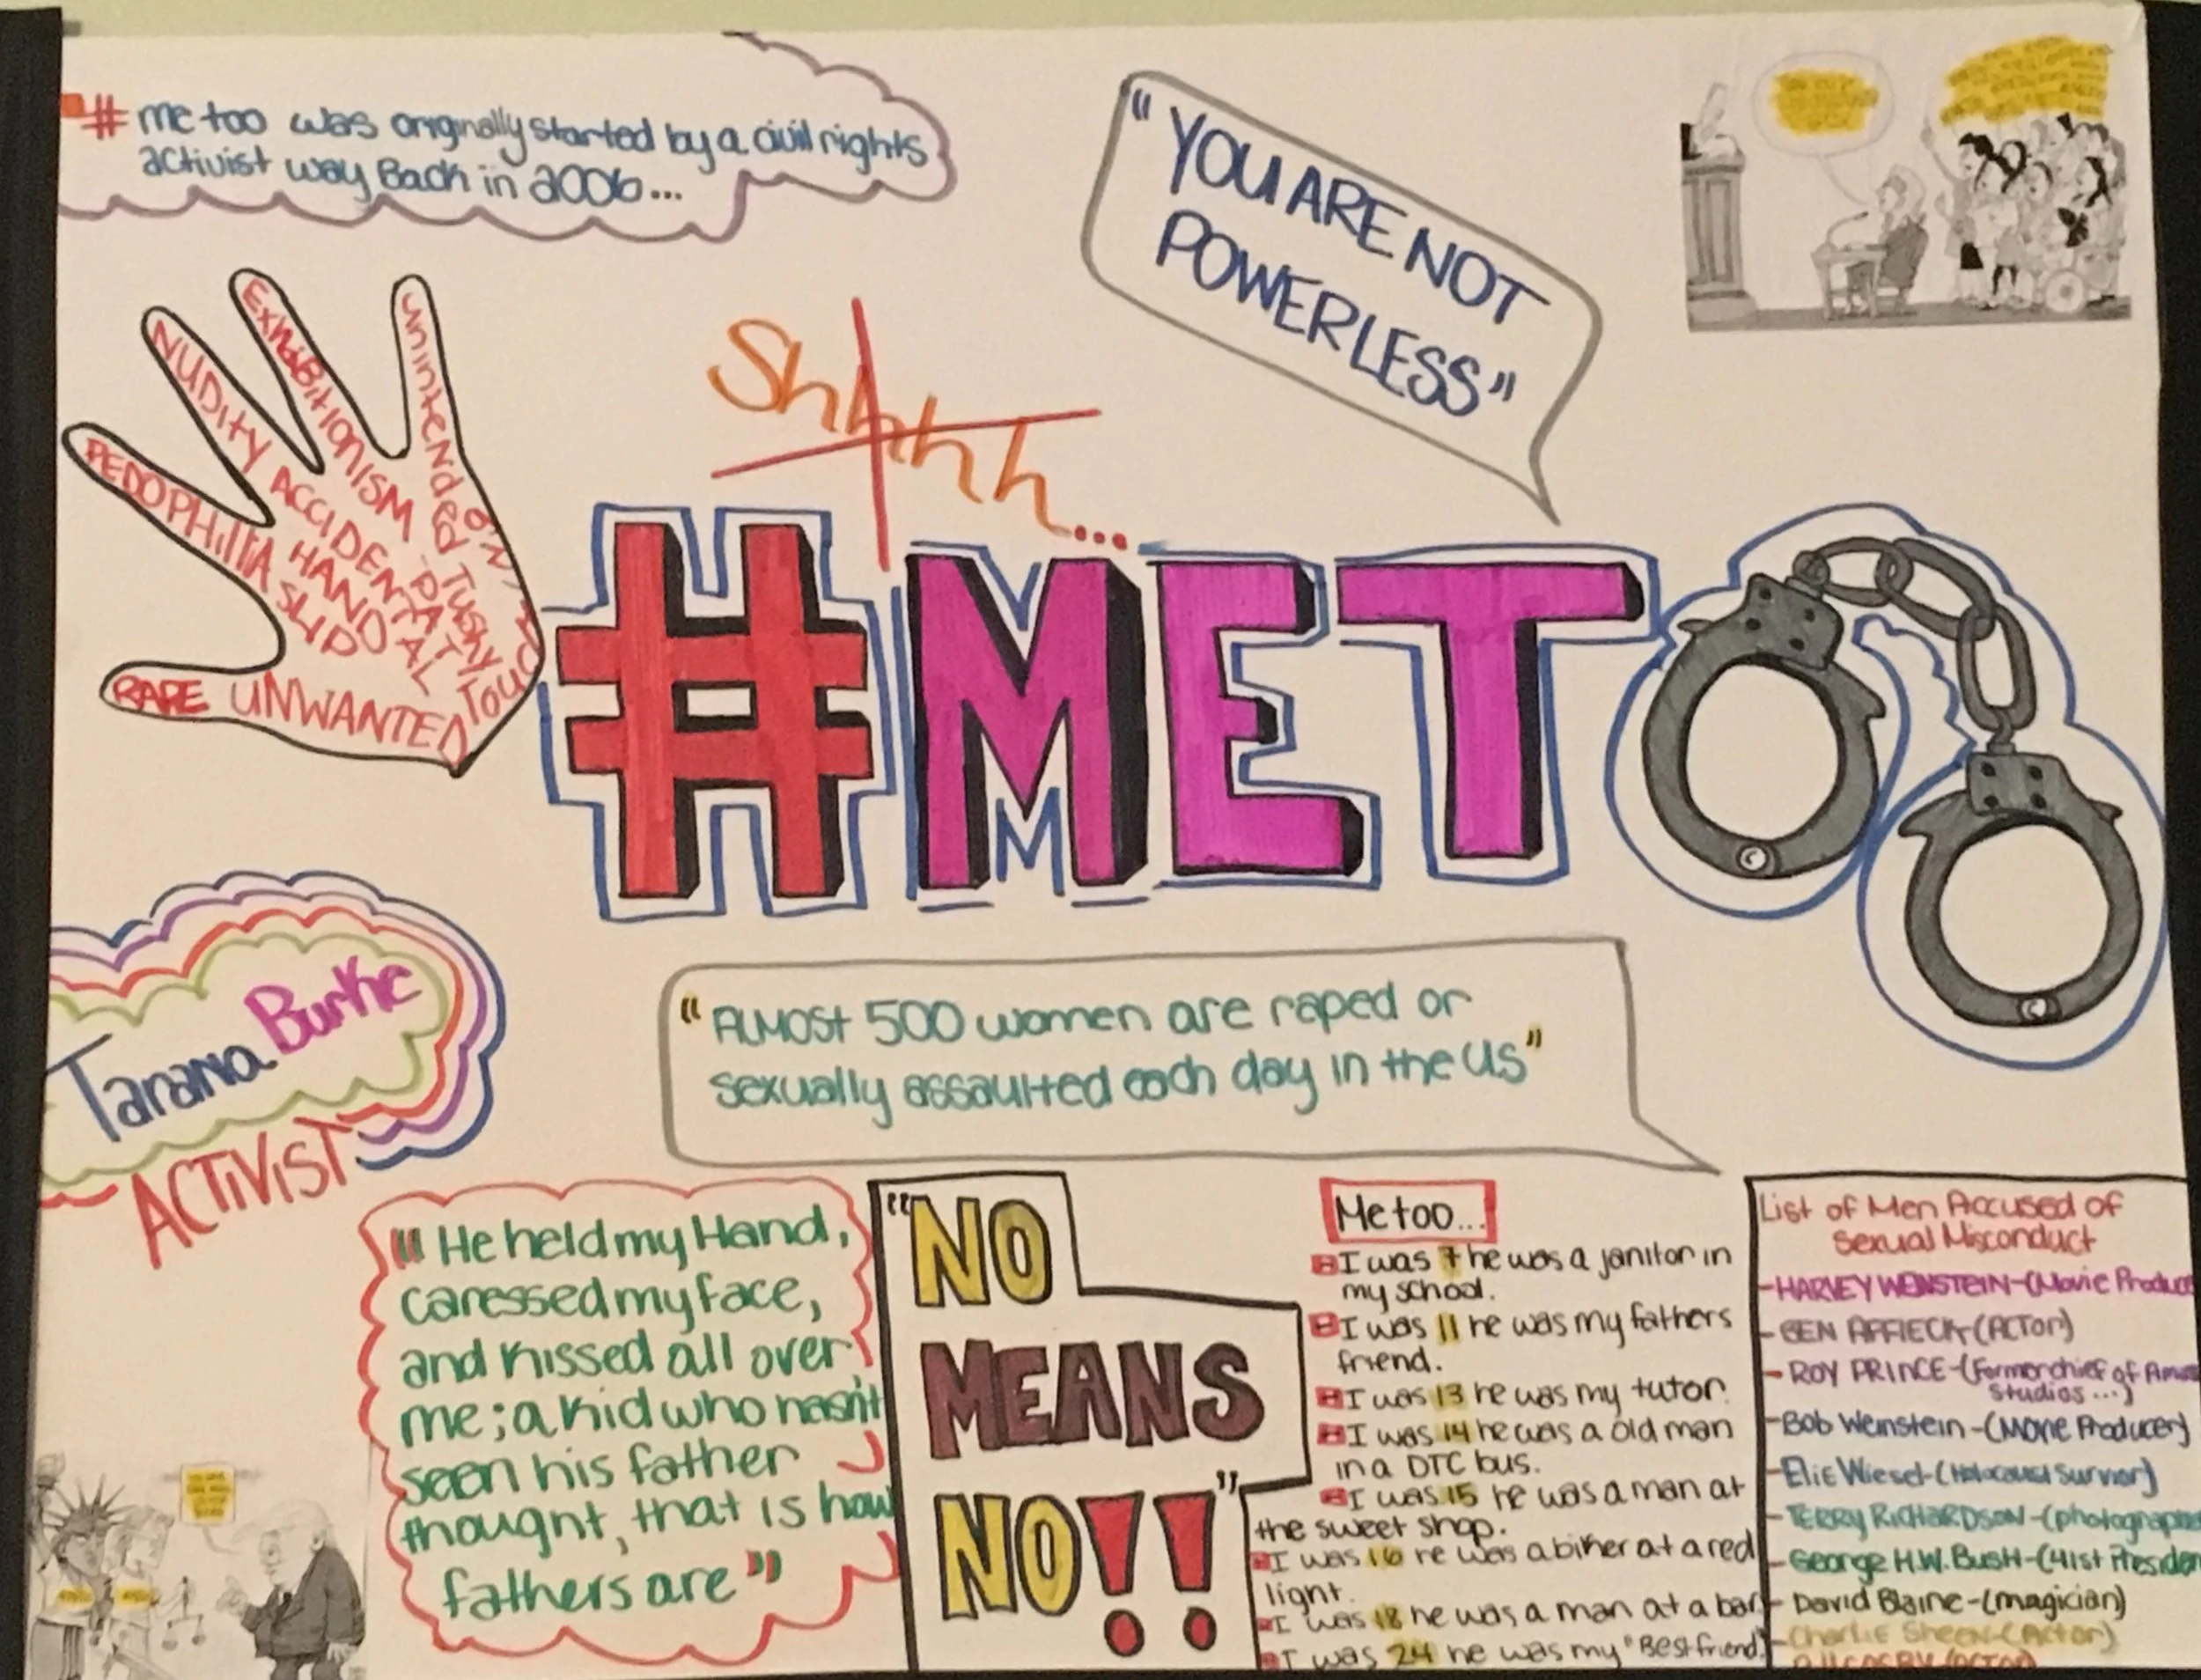 #me too was originally started by a civil rights
activist way Back in 2006...
"YOU ARE NOT
POWERLESS"
Shhhh...
PEDOPHILIA
NUDITY
EXHIBITIONISM
unintended
ACCIDENTAL
HAND
SLIP
PAT
TUSHY
RAPE
UNWANTED
TOUCH
#MET
Tarana Burke
ACTIVIST
"ALMOST 500 women are raped or
sexually assaulted each day in the US"
"He held my Hand,
caressed my face,
and kissed all over
me; a kid who hasn't
seen his father
thought, that is how
fathers are"
"NO
MEANS
NO!!"
Me too...
I was 7 he was a janitor in
my school.
I was 11 he was my fathers
friend.
I was 13 he was my tutor.
I was 14 he was a old man
in a DTC bus.
I was 15 he was a man at
the sweet shop.
I was 16 he was a biker at a red
light.
I was 18 he was a man at a bar
I was 24 he was my "Best friend
List of Men Accused of
Sexual Misconduct
-HARVEY WEINSTEIN-(Movie Produce
-BEN AFFLECK-(ACTOR)
-ROY PRINCE-(Former chief of Amaz
Studios...)
-Bob Weinstein-(Movie Producer)
-Elie Wiesel-(Holocaust Survivor)
-TERRY RICHARDSON-(photographe
-George H.W. BusH-(41st Presiden
-David Blaine-(magician)
-Charlie Sheen-(Actor)
BILL COSBY-(ACTOR)